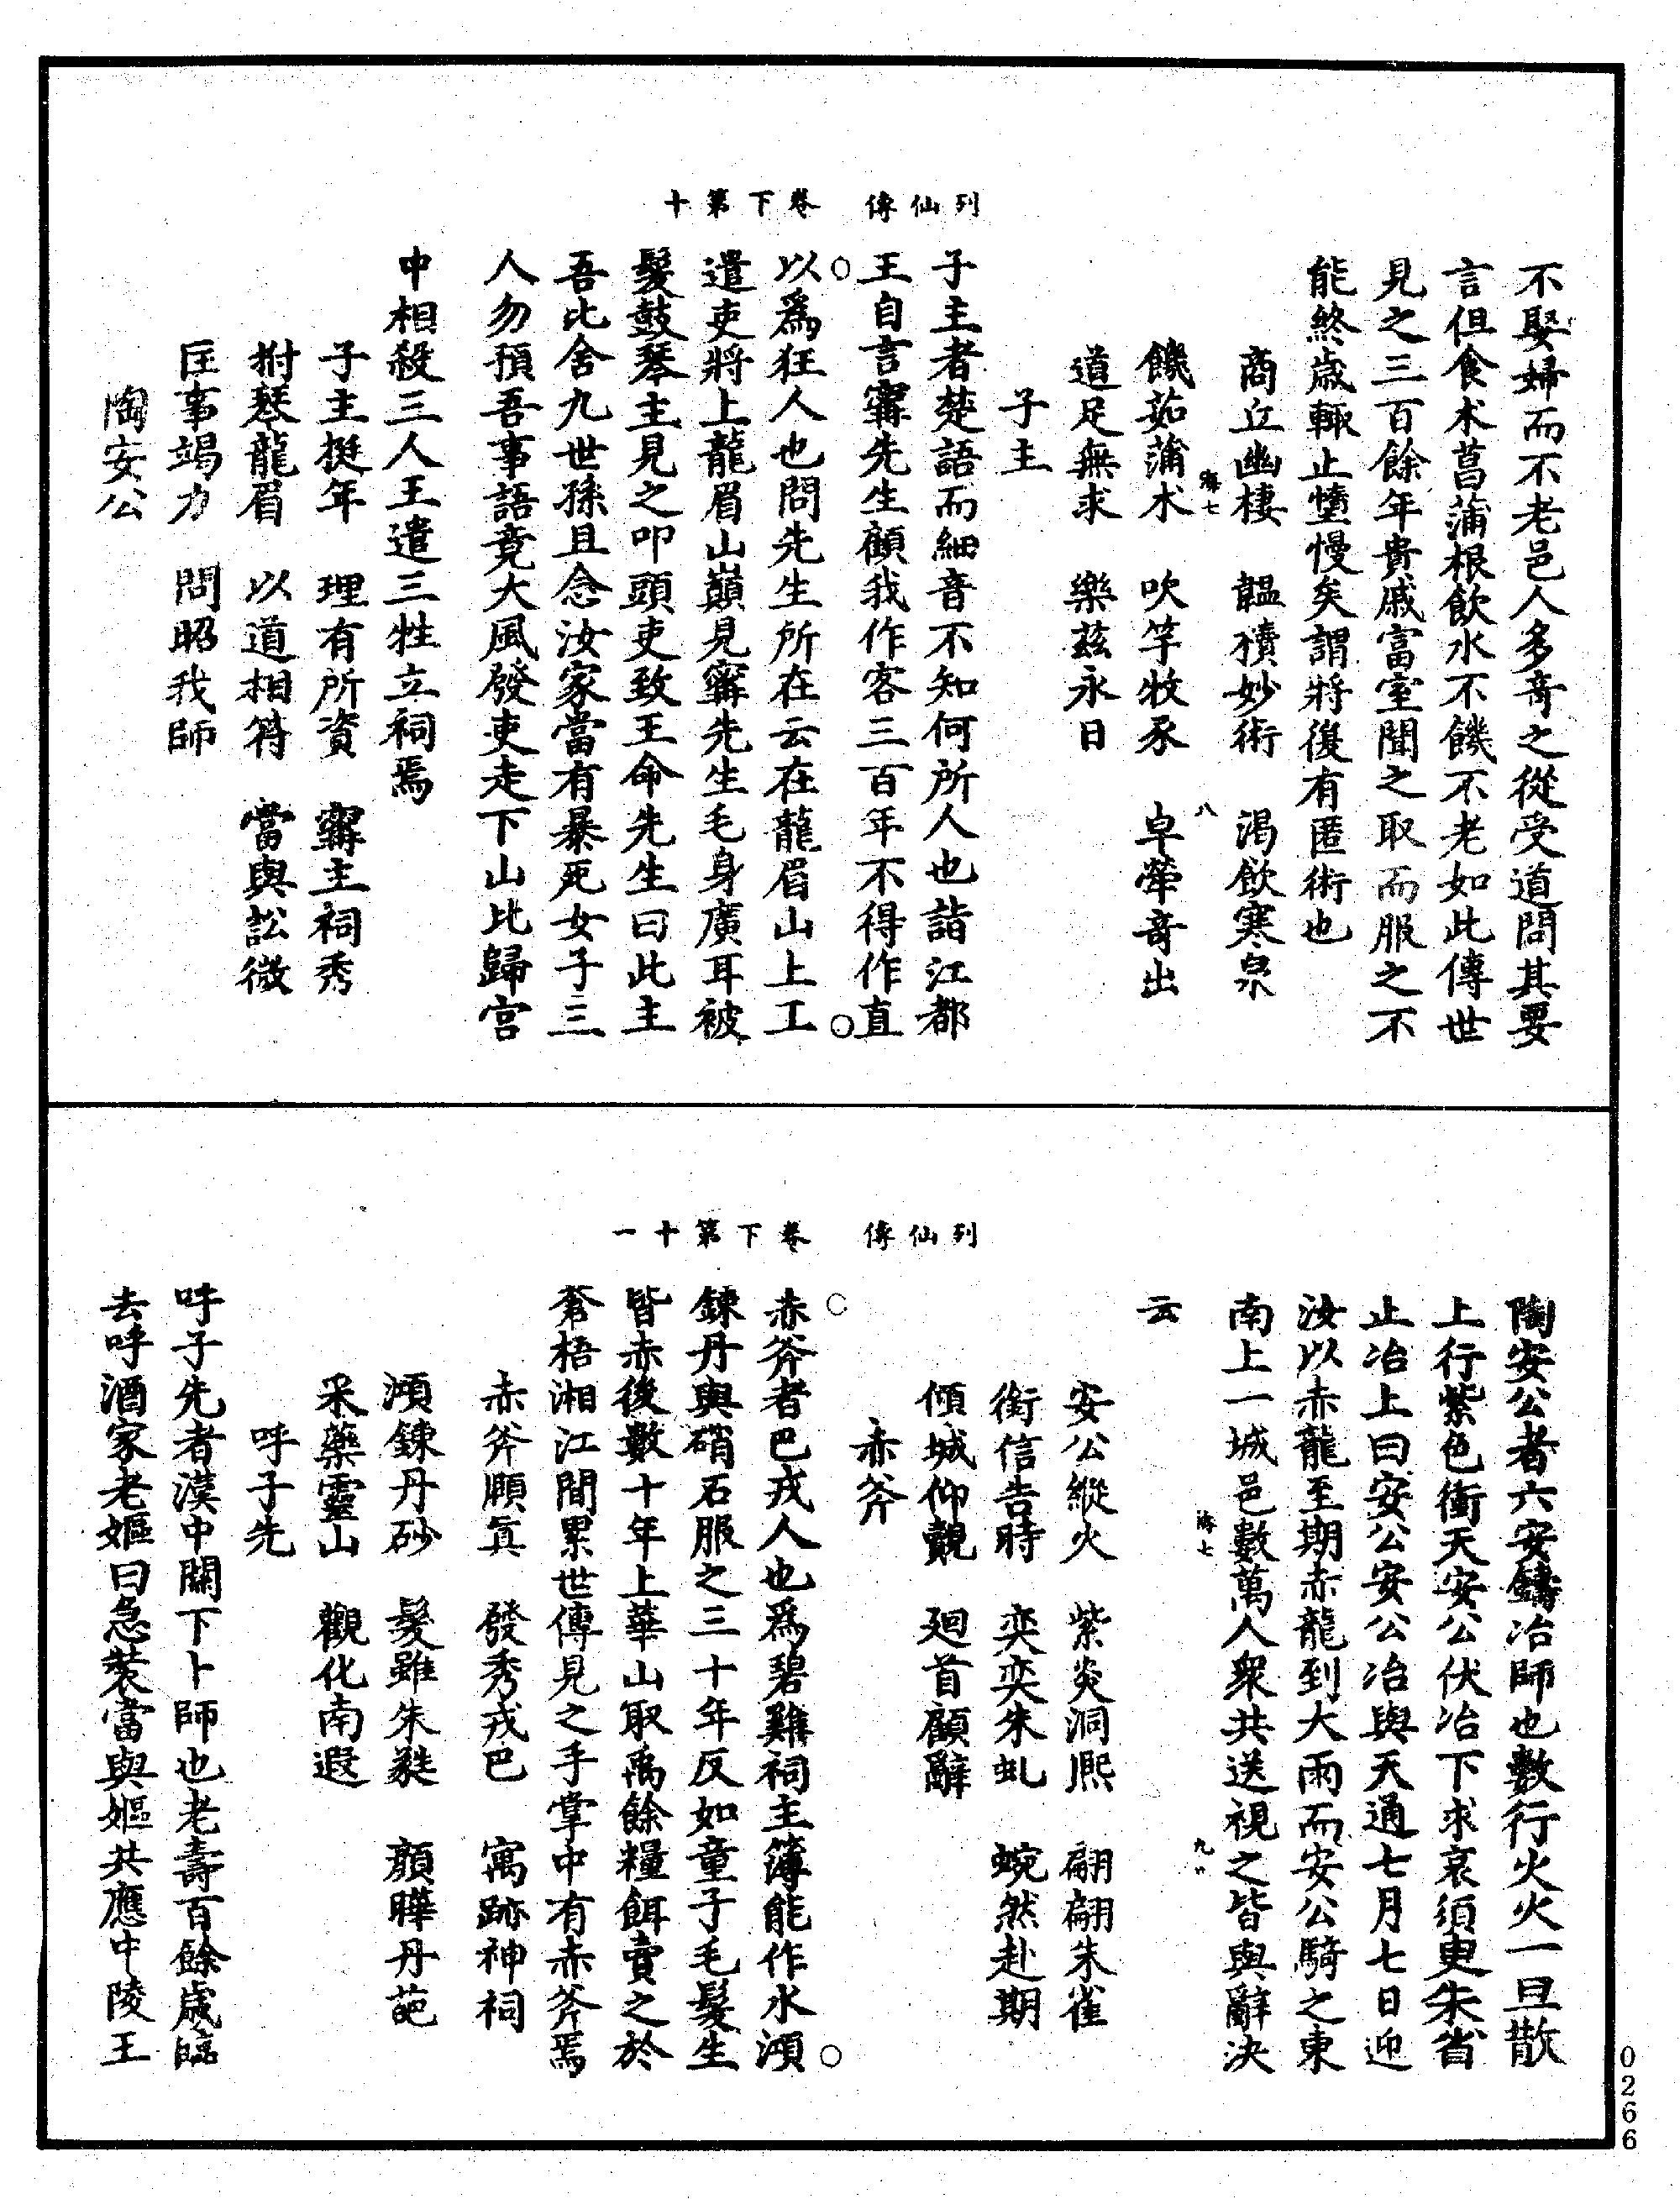 列仙傳　卷下第十
不娶婦而不老邑人多竒之從受道問其要
言但食朮菖蒲根飲水不饑不老如此傳世
見之三百餘年貴戚富室聞之取而服之不
能終歲輒止墮慢矣謂將復有匿術也
商丘幽棲　韞櫝妙術　渴飲寒泉
海七　八
饑茹蒲朮　吹竽牧豕　卓犖竒出
道足無求　樂茲永日
子主
子主者楚語而細音不知何所人也詣江都
王自言甯先生顧我作客三百年不得作直
以爲狂人也問先生所在云在龍眉山上工
遣吏將上龍眉山巔見甯先生毛身廣耳被
髮鼓琴主見之叩頭吏致王命先生曰此主
吾比舍九世孫且念汝家當有暴死女子三
人勿預吾事語竟大風發吏走下山比歸宮
中相殺三人王遣三牲立祠焉
子主挺年　理有所資　甯主祠秀
拊琴龍眉　以道相符　當與訟微
匡事竭力　問昭我師
陶安公
列仙傳　卷下第十一
陶安公者六安鑄冶師也數行火火一旦散
上行紫色衝天安公伏冶下求哀須臾朱雀
止冶上曰安公安公冶與天通七月七日迎
汝以赤龍至期赤龍到大雨而安公騎之東
南上一城邑數萬人衆共送視之皆與辭決
海七　九
云
安公縱火　紫炎洞熈　翩翩朱雀
銜信告時　奕奕朱虬　蜿然赴期
傾城仰覿　廻首顧辭
赤斧
赤斧者巴戎人也爲碧雞祠主簿能作水澒
鍊丹與硝石服之三十年反如童子毛髮生
皆赤後數十年上華山取禹餘糧餌賣之於
蒼梧湘江間累世傳見之手掌中有赤斧焉
赤斧頤真　發秀戎巴　寓跡神祠
澒鍊丹砂　髮雖朱蕤　顏曄丹葩
采藥靈山　觀化南遐
呼子先
呼子先者漢中關下卜師也老壽百餘歲臨
去呼酒家老嫗曰急裝當與嫗共應中陵王
0266